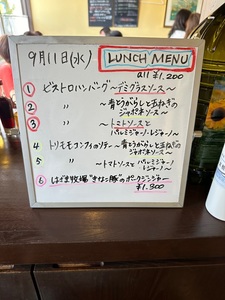 9月11日(水) LUNCH MENU
all ¥1.200
① ビストロハンバーグ~デミグラスソース~
② 〃 ~青とうがらしと玉ねぎの
ジャポネソース~
③ 〃 ~トマトソースと
パルミジャーノ・レジャーノ~
4 トリモモコンフィのソテー ~青とうがらしと玉ねぎの
ジャポネソース~
5 〃 ~トマトソースとパルミジャーノ
レジャーノ~
⑥ はざま牧場"きなこ豚"のポークジンジャー
¥1.300